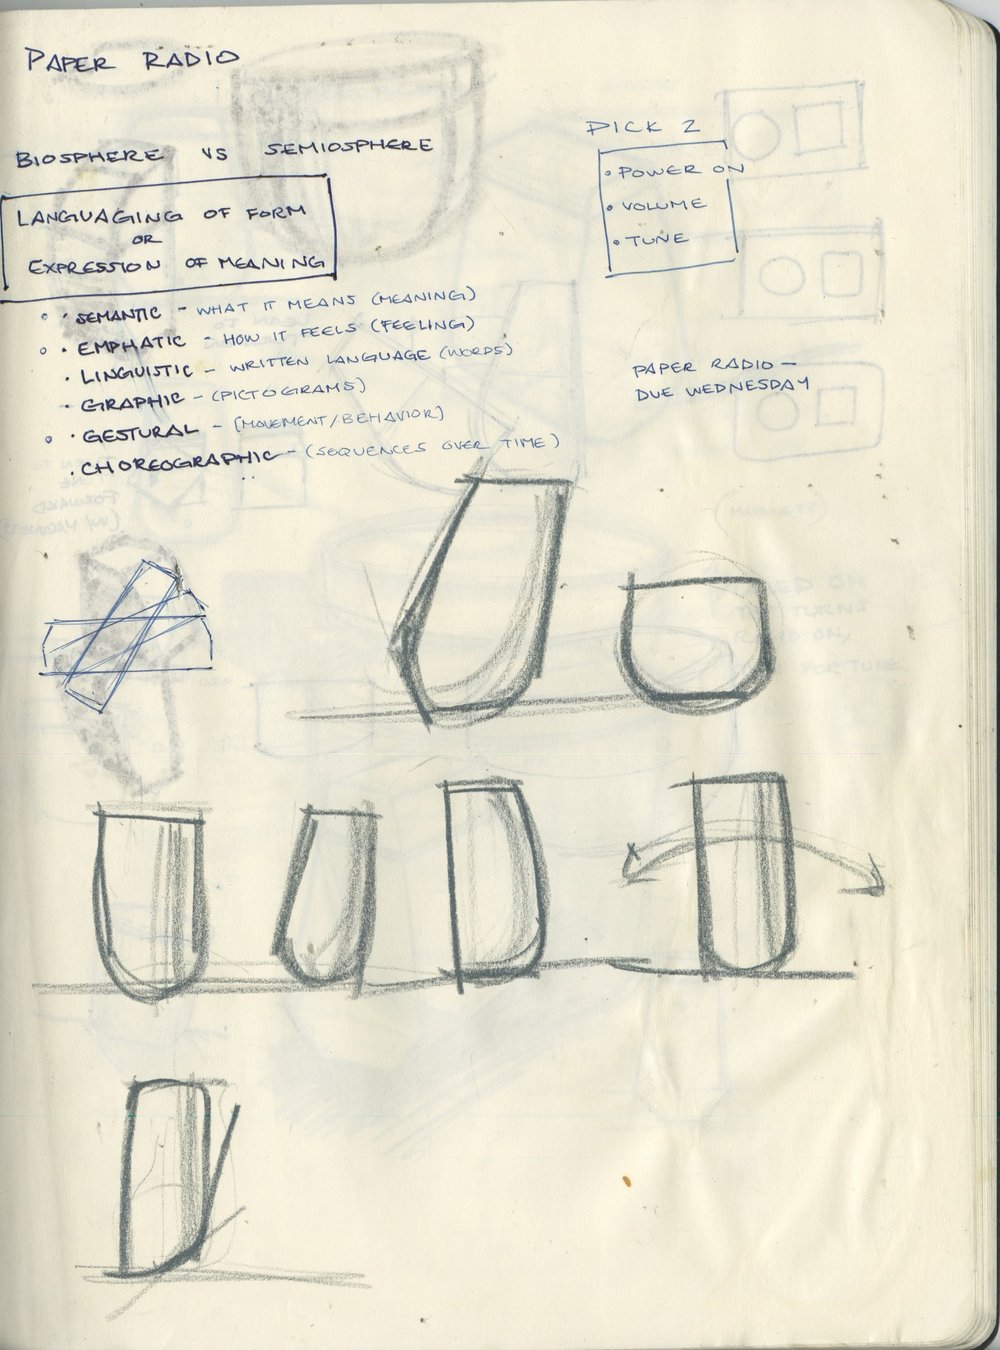 PAPER RADIO
BIOSPHERE VS SEMIOSPHERE
LANGUAGING OF FORM
OR
EXPRESSION OF MEANING
• SEMANTIC - WHAT IT MEANS (MEANING)
• EMPHATIC - HOW IT FEELS (FEELING)
• LINGUISTIC - WRITTEN LANGUAGE (WORDS)
• GRAPHIC - (PICTOGRAMS)
• GESTURAL - (MOVEMENT/BEHAVIOR)
• CHOREOGRAPHIC - (SEQUENCES OVER TIME)
PICK 2
• POWER ON
• VOLUME
• TUNE
PAPER RADIO -
DUE WEDNESDAY